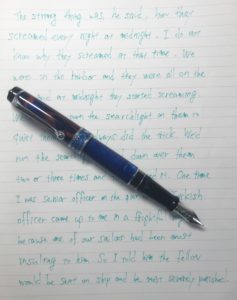 The strange thing was, he said, how they
screamed every night at midnight. I do not
know why they screamed at that time. We
were in the harbor and they were all on the
and at midnight they started screaming.
We the searchlight on them to
quiet always did the trick. We'd
run the down over them
two or three times and it. One time
I was senior officer on the
officer came up to me in a
because one of our sailors had been most
insulting to him. So I told him the fellow
would be sent on ship and be most severely punished.